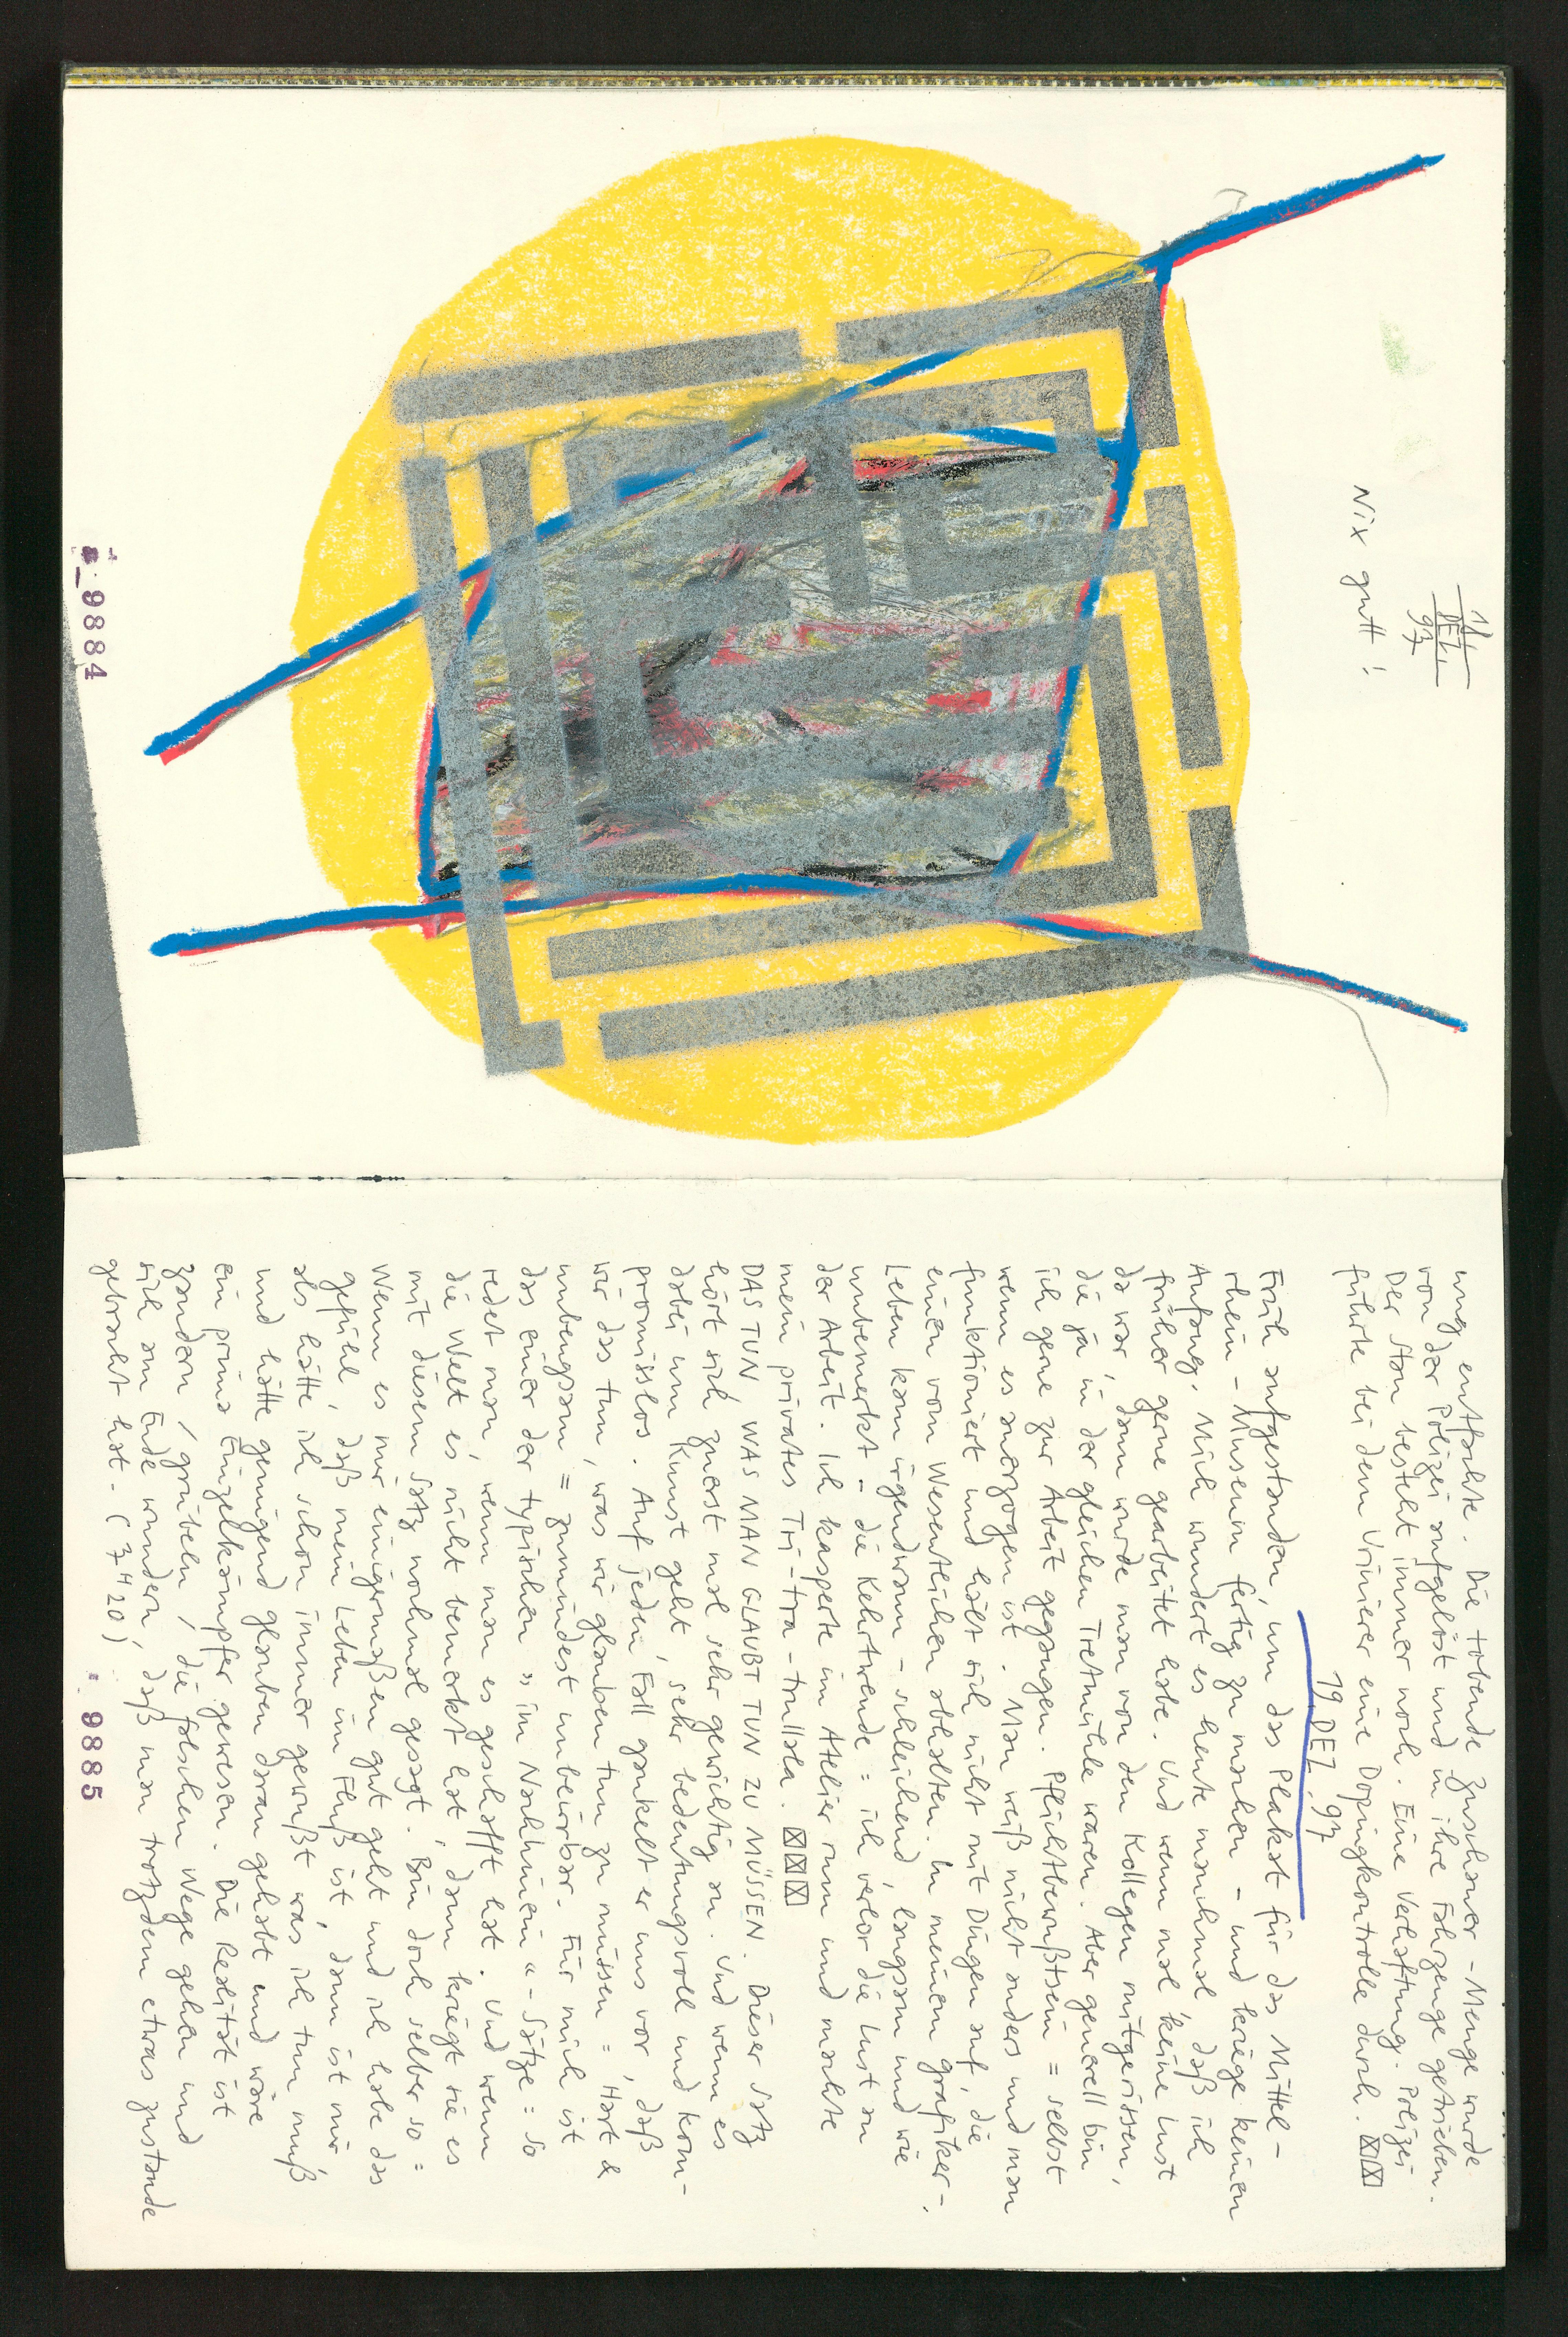 11.
DEZ.
97
Nix gutt!
9884
ung entfachte. Die tobende Zuschauer-Menge wurde
von der Polizei aufgelöst und in ihre Fahrzeuge getrieben.
Der Stau besteht immer noch. Eine Verhaftung. Polizei
führte bei dem Urinierer eine Dopingkontrolle durch. ☒☒
19. DEZ. 97
Früh aufgestanden, um das Plakat für das Mittel-
rhein-Museum fertig zu machen - und kriege keinen
Anfang. Mich wundert es heute manchmal, daß ich
früher gerne gearbeitet habe. Und wenn mal keine Lust
da war, dann wurde man von den Kollegen mitgerissen,
die ja in der gleichen Tretmühle waren. Aber generell bin
ich gerne zur Arbeit gegangen. Pflichtbewußtsein = selbst
wenn es anerzogen ist. Man weiß nicht anders und man
funktioniert und hält sich nicht mit Dingen auf, die
einen vom Wesentlichen abhalten. In meinem Grafiker-
Leben kam irgendwann - schleichend, langsam und wie
unbemerkt - die Kehrtwende = ich verlor die Lust an
der Arbeit. Ich kasperte im Atelier rum und machte
mein privates Tri-tra-trullala. ☒☒☒
DAS TUN WAS MAN GLAUBT TUN ZU MÜSSEN. Dieser Satz
hört sich zuerst mal sehr gewichtig an. Und wenn es
dabei um Kunst geht, sehr bedeutungsvoll und kom-
promisslos. Auf jeden Fall gaukelt er uns vor, daß
wir das tun, was wir glauben tun zu müssen = Hart &
unbeugsam = zumindest unbeirrbar. Für mich ist
das einer der typischen "im Nachhinein"-Sätze = so
redet man, wenn man es geschafft hat. Und wenn
die Welt es nicht bemerkt hat, dann kriegt sie es
mit diesem Satz nochmal gesagt. Bin doch selber so =
Wenn es mir einigermaßen gut geht und ich habe das
Gefühl, daß mein Leben im Fluß ist, dann ist mir
als hätte ich schon immer gewußt was ich tun muß,
und hätte genügend Glauben daran gehabt und wäre
ein prima Einzelkämpfer gewesen. Die Realität ist
zaudern, grübeln, die falschen Wege gehen und
sich am Ende wundern, daß man trotzdem etwas zustande
gebracht hat. (7⁴20)
9885